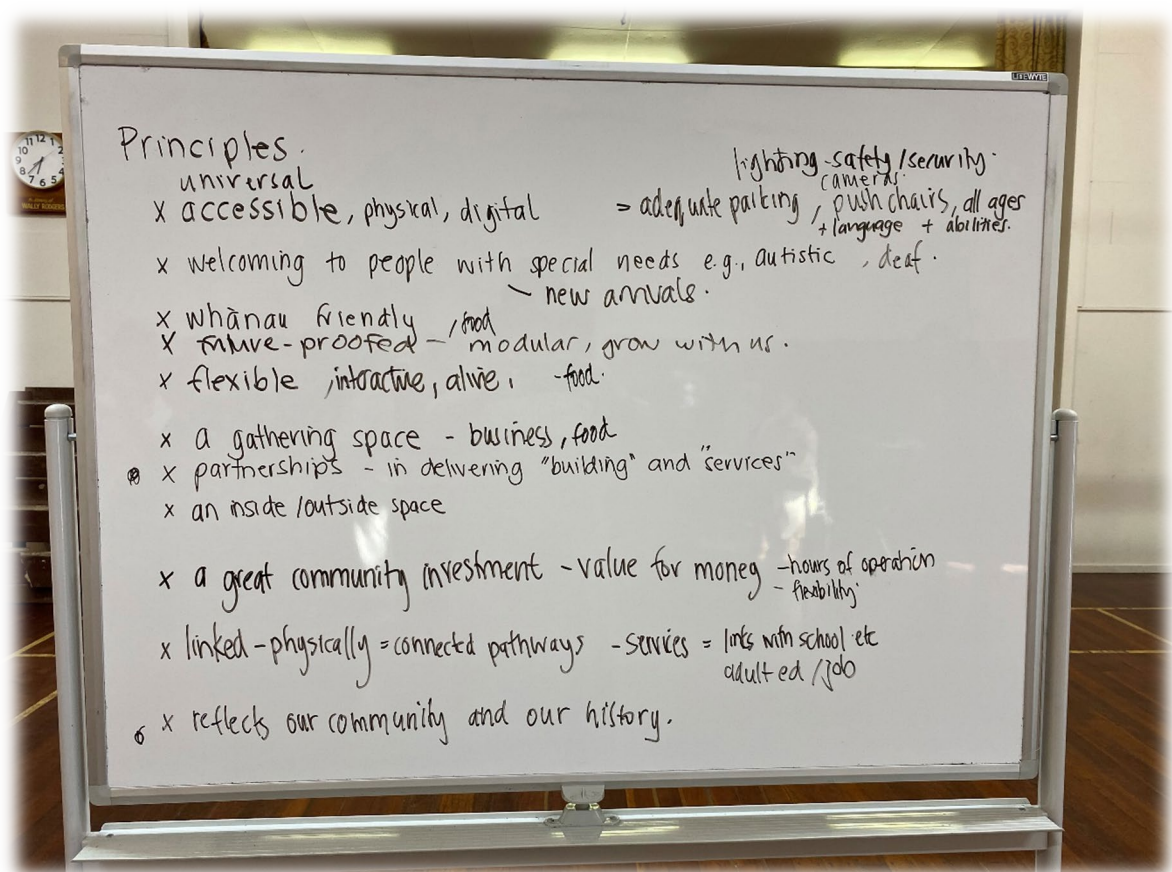 LITEWYTE
11 12 1
10 2
9 3
8 4
7 6 5
WALLY RODGERS
Principles.
lighting - safety/security.
cameras
universal
x accessible, physical, digital = adequate parking, pushchairs, all ages
+ language + abilities.
x welcoming to people with special needs e.g., autistic, deaf.
- new arrivals.
x whānau friendly, food
x future-proofed - modular, grow with us.
x flexible, interactive, alive, - food.
x a gathering space - business, food
x partnerships - in delivering "building" and "services"
x an inside/outside space
x a great community investment - value for money - hours of operation
- flexibility
x linked - physically = connected pathways - services = links with school etc
adult ed/job
x reflects our community and our history.